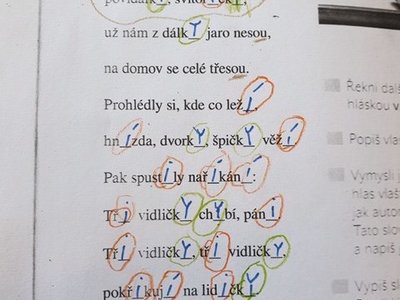 už nám z dálky jaro nesou,
na domov se celé třesou.
Prohlédly si, kde co leží,
hnízda, dvorky, špičky věží.
Pak spustily naříkání:
Tři vidličky chybí, páni
Tři vidličky, tři vidličky,
pokřikují na lidičky
Řekni dal
hláskou
Popiš vla
Vymysli j
hlas vlašt
jak autor
Tato slov
a napiš j
Vypiš s